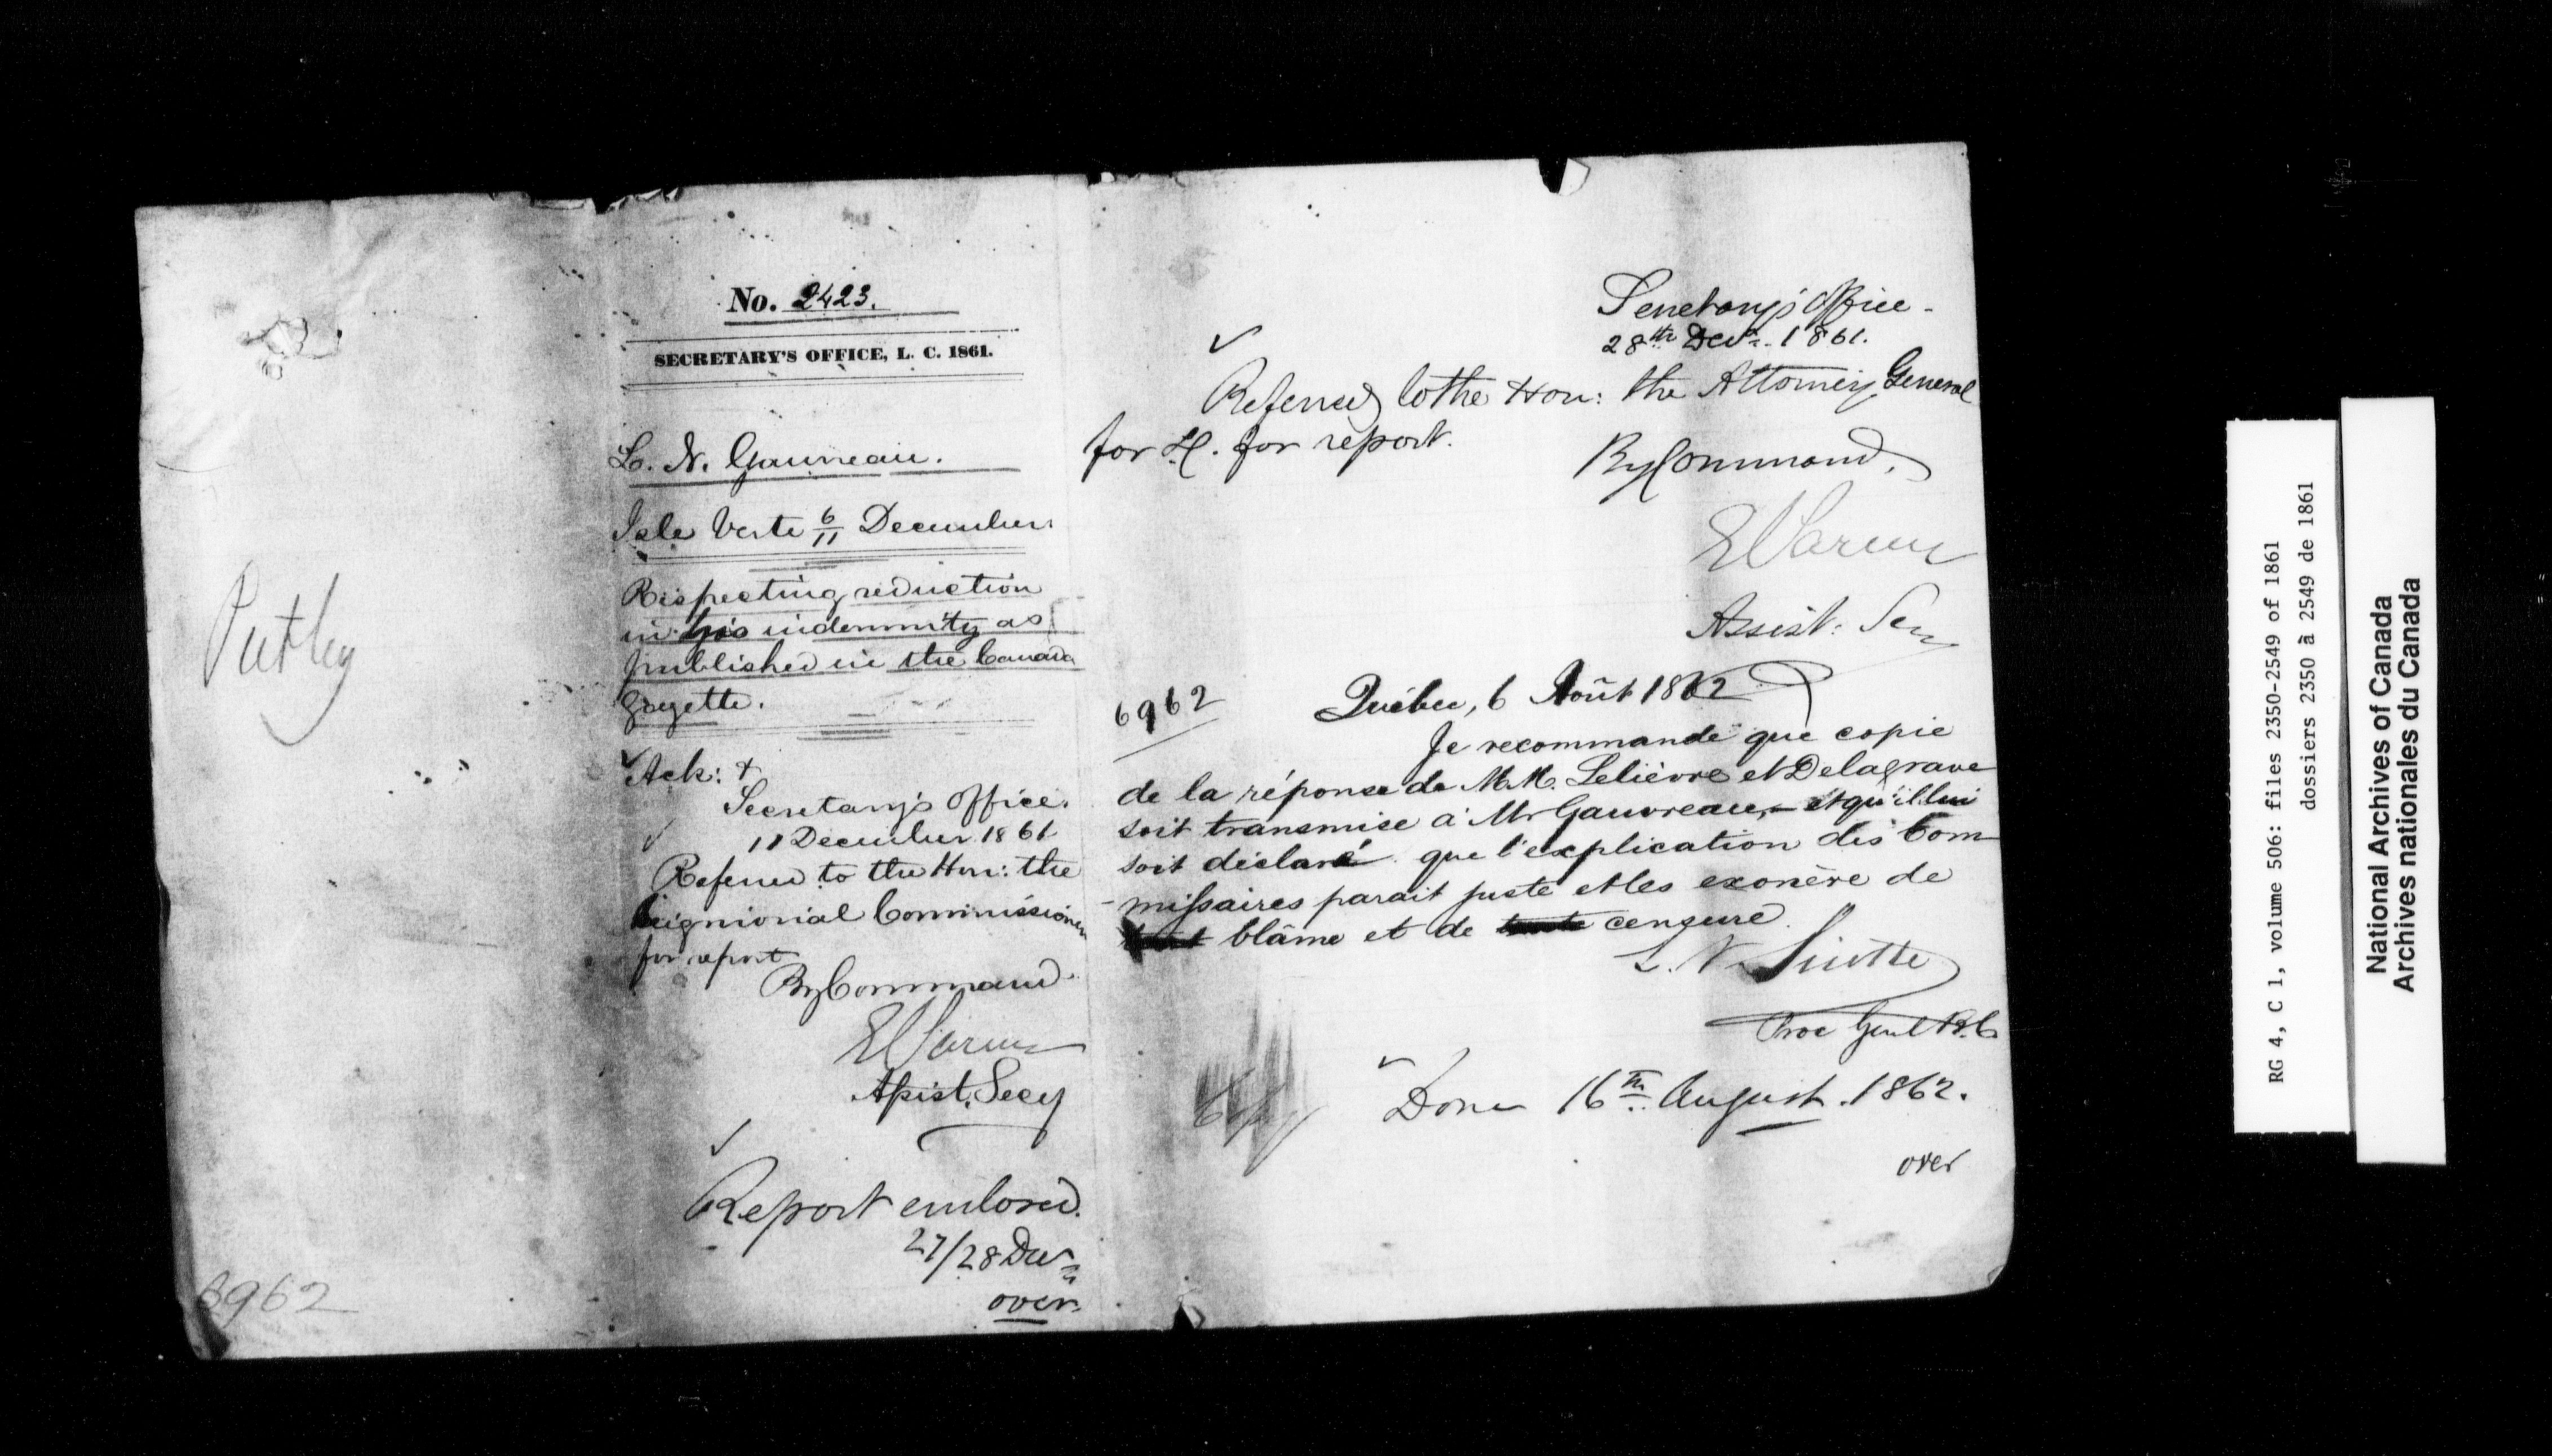 6962
No. 2423.
SECRETARY'S OFFICE, L. C. 1861.
L. N. Gauvreau.
Isle Verte 6/11 December
Respecting reduction
in his indemnity as
published in the Canada
Gazette.
Ack: +
Secretary's Office.
11 December 1861
Referred to the Hon: the
Seigniorial Commissioners
for report
By Command
Assist. Secy
Report enclosed.
27/28 Decr
over
Secretary's Office -
28th Decr. 1861.
Referred to the Hon: the Attorney General
for L.C. for report.
By Command,
Assist: Secy
6962
Québec, 6 Août 1862
Je recommande que copie
de la réponse de M.M. Lelièvre et Delagrave
soit transmise à Mr Gauvreau, - et qu'il lui
soit déclaré que l'explication des Com-
-missaires parait juste et les exonère de
tout blâme et de toute censure.
L. V. Sicotte
Proc Genl B.C.
Done 16th August. 1862.
over
RG 4, C 1, volume 506: files 2350-2549 of 1861
dossiers 2350 à 2549 de 1861
National Archives of Canada
Archives nationales du Canada